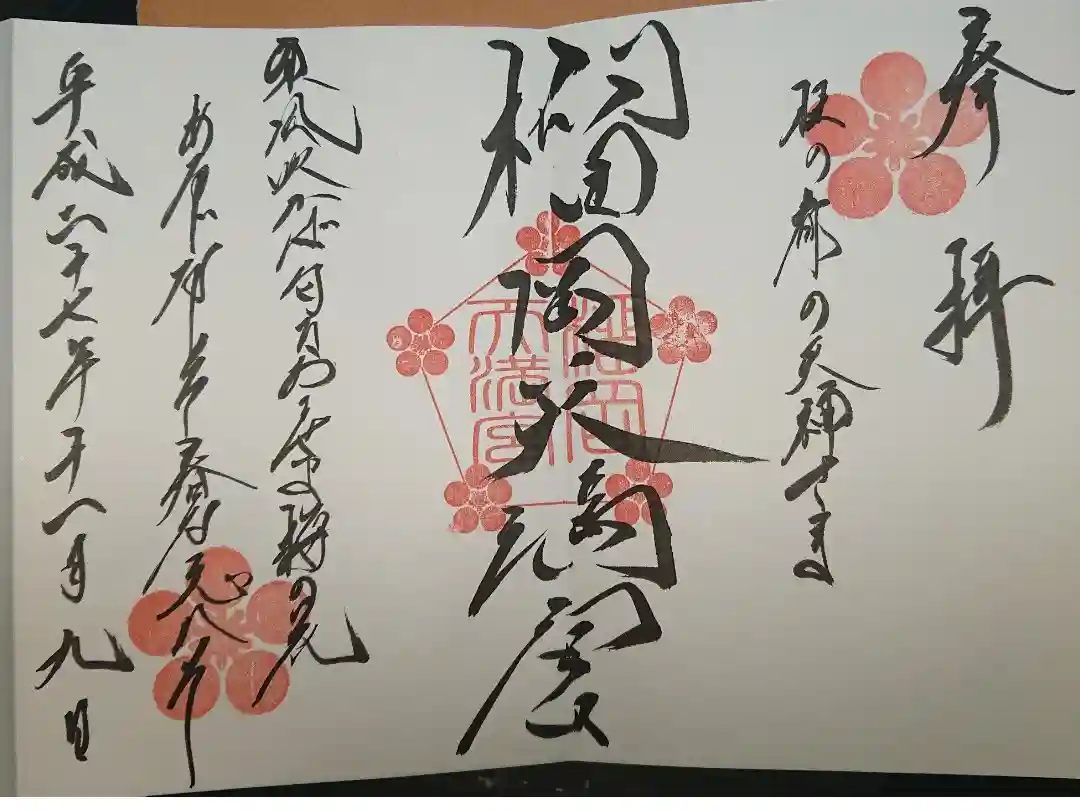 奉拝
杜の都の天神さま
榴岡天満宮
榴岡天満宮
東風吹かば匂ひおこせよ梅の花
あるじなしとて春な忘れそ
平成二十七年十一月九日